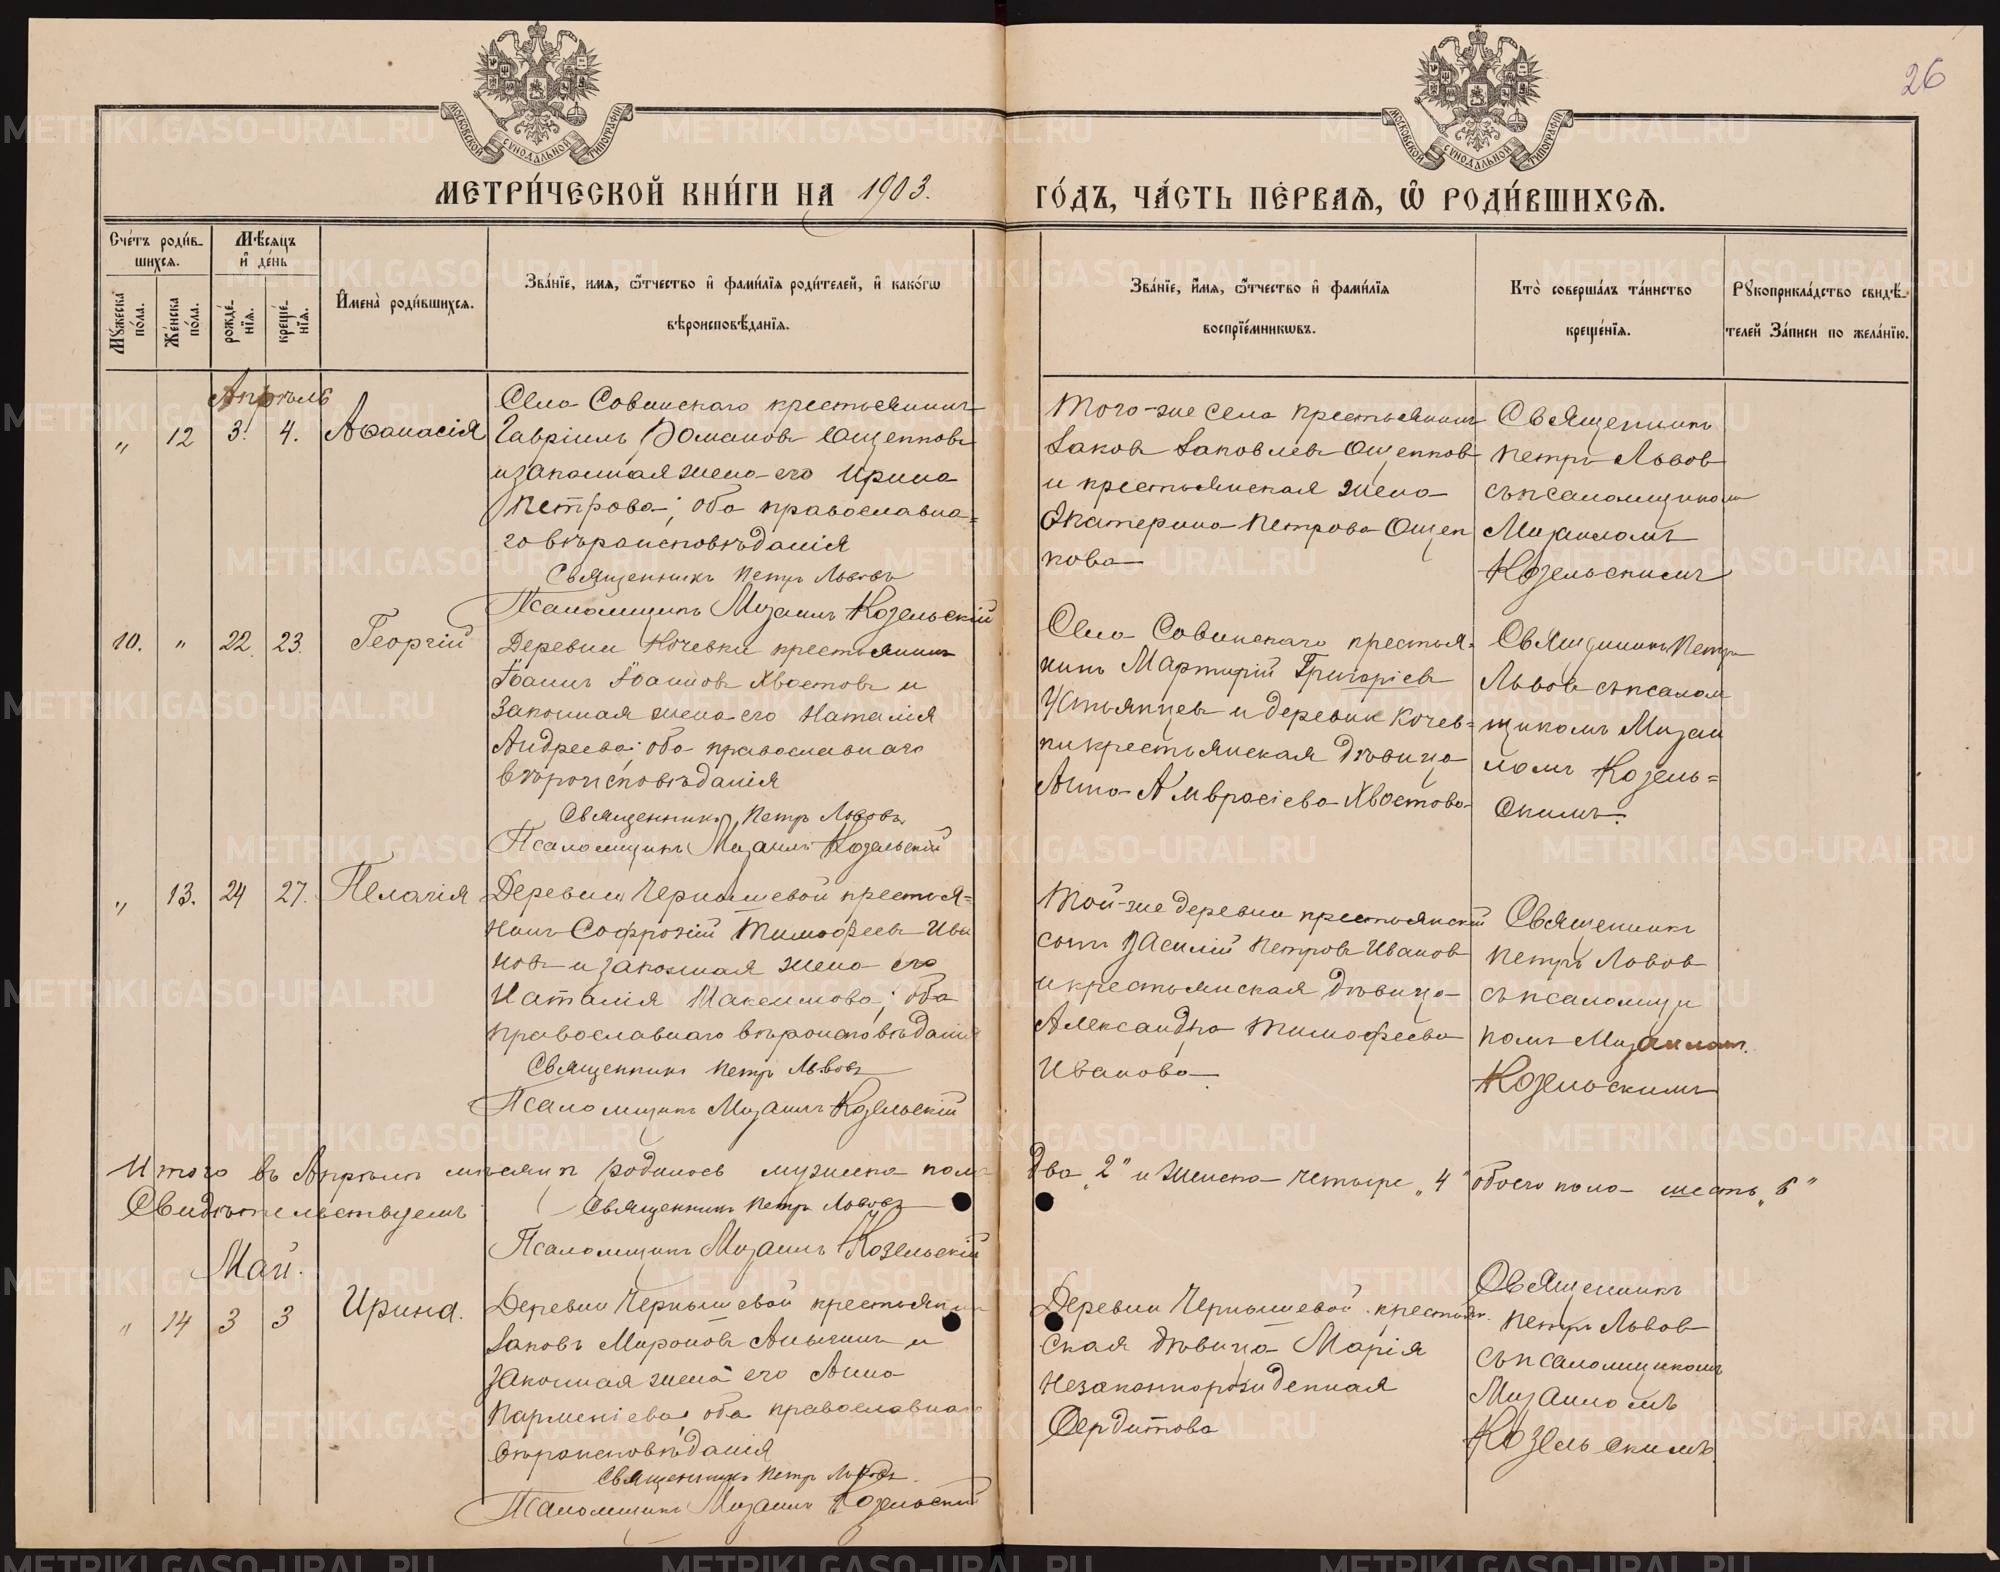 26
МОСКОВСКОЙ СѴНОДАЛЬНОЙ ТИПОГРАФІИ
МОСКОВСКОЙ СѴНОДАЛЬНОЙ ТИПОГРАФІИ
МЕТРИ́ЧЕСКОЙ КНИ́ГИ НА 1903. ГО́ДЪ, ЧА́СТЬ ПЕ́РВАЯ, Ѡ РОДИ́ВШИХСЯ.
Сче́тъ роди́вшихся.
Мѣ́сяцъ и де́нь
Мꙋ́жеска по́ла.
Же́нска по́ла.
рожде́нїя.
креще́нїя.
И҆мена̀ роди́вшихся.
Зва́нїе, имя, ѻ҆́тчество и҆ фами́лїя роди́телей, и҆ како́гѡ
вѣроисповѣ́данїя.
Зва́нїе, и҆́мя, ѻ҆́тчество и҆ фами́лїя
воспрїе́мникѡвъ.
Кто̀ соверша́лъ та́инство
креще́нїя.
Рꙋкоприкла́дство свидѣ́-
телей За́писи по жела́нїю.
Апрѣль
„ 12 3. 4. Аѳанасія
Села Совинскаго крестьянинъ
Гавріилъ Романовъ Ощепковъ
и законная жена его Ирина
Петрова; оба православна=
го вѣроисповѣданія
Священникъ Петръ Львовъ
Псаломщикъ Михаилъ Козельскій
Того-же села крестьянинъ
Іаковъ Іаковлевъ Ощепковъ
и крестьянская жена
Екатерина Петрова Ощеп
кова
Священникъ
Петръ Львовъ
съ псаломщикомъ
Михаиломъ
Козельскимъ
10. „ 22. 23. Георгій
Деревни Кочевки крестьянинъ
Іоаннъ Іоанновъ Хвостовъ и
законная жена его Наталія
Андреева; оба православнаго
вѣроисповѣданія
Священникъ Петръ Львовъ
Псаломщикъ Михаилъ Козельскій
Села Совинскаго крестья=
нинъ Мартирій Григоріевъ
Устьянцевъ и деревни Кочев=
ки крестьянская дѣвица
Анна Амвросіева Хвостова
Священникъ Петръ
Львовъ съ псалом
щикомъ Михаи
ломъ Козель=
скимъ.
„ 13. 24 27. Пелагія
Деревни Чернышевой крестья=
нинъ Софроній Тимофеевъ Ива
новъ и законная жена его
Наталія Максимова; оба
православнаго вѣроисповѣданія
Священникъ Петръ Львовъ
Псаломщикъ Михаилъ Козельскій
Той-же деревни крестьянскій
сынъ Василій Петровъ Ивановъ
и крестьянская дѣвица
Александра Тимофеева
Иванова.
Священникъ
Петръ Львовъ
съ псаломщи
комъ Михаиломъ
Козельскимъ
Итого въ Апрѣлѣ мѣсяцѣ родилось мужска пола два „2“ и женска четыре „4“ обоего пола шесть „6“
Свидѣтельствуемъ
Священникъ Петръ Львовъ
Псаломщикъ Михаилъ Козельскій
Май.
„ 14 3 3 Ирина.
Деревни Чернышевой крестьянинъ
Іаковъ Мироновъ Аничинъ и
законная жена его Анна
Парменіева, оба православнаго
вѣроисповѣданія
Священникъ Петръ Львовъ.
Псаломщикъ Михаилъ Козельскій
Деревни Чернышевой крестьян
ская дѣвица Марія
незаконнорожденная
Сердитова
Священникъ
Петръ Львовъ
съ псаломщикомъ
Михаиломъ
Козельскимъ.
METRIKI.GASO-URAL.RU